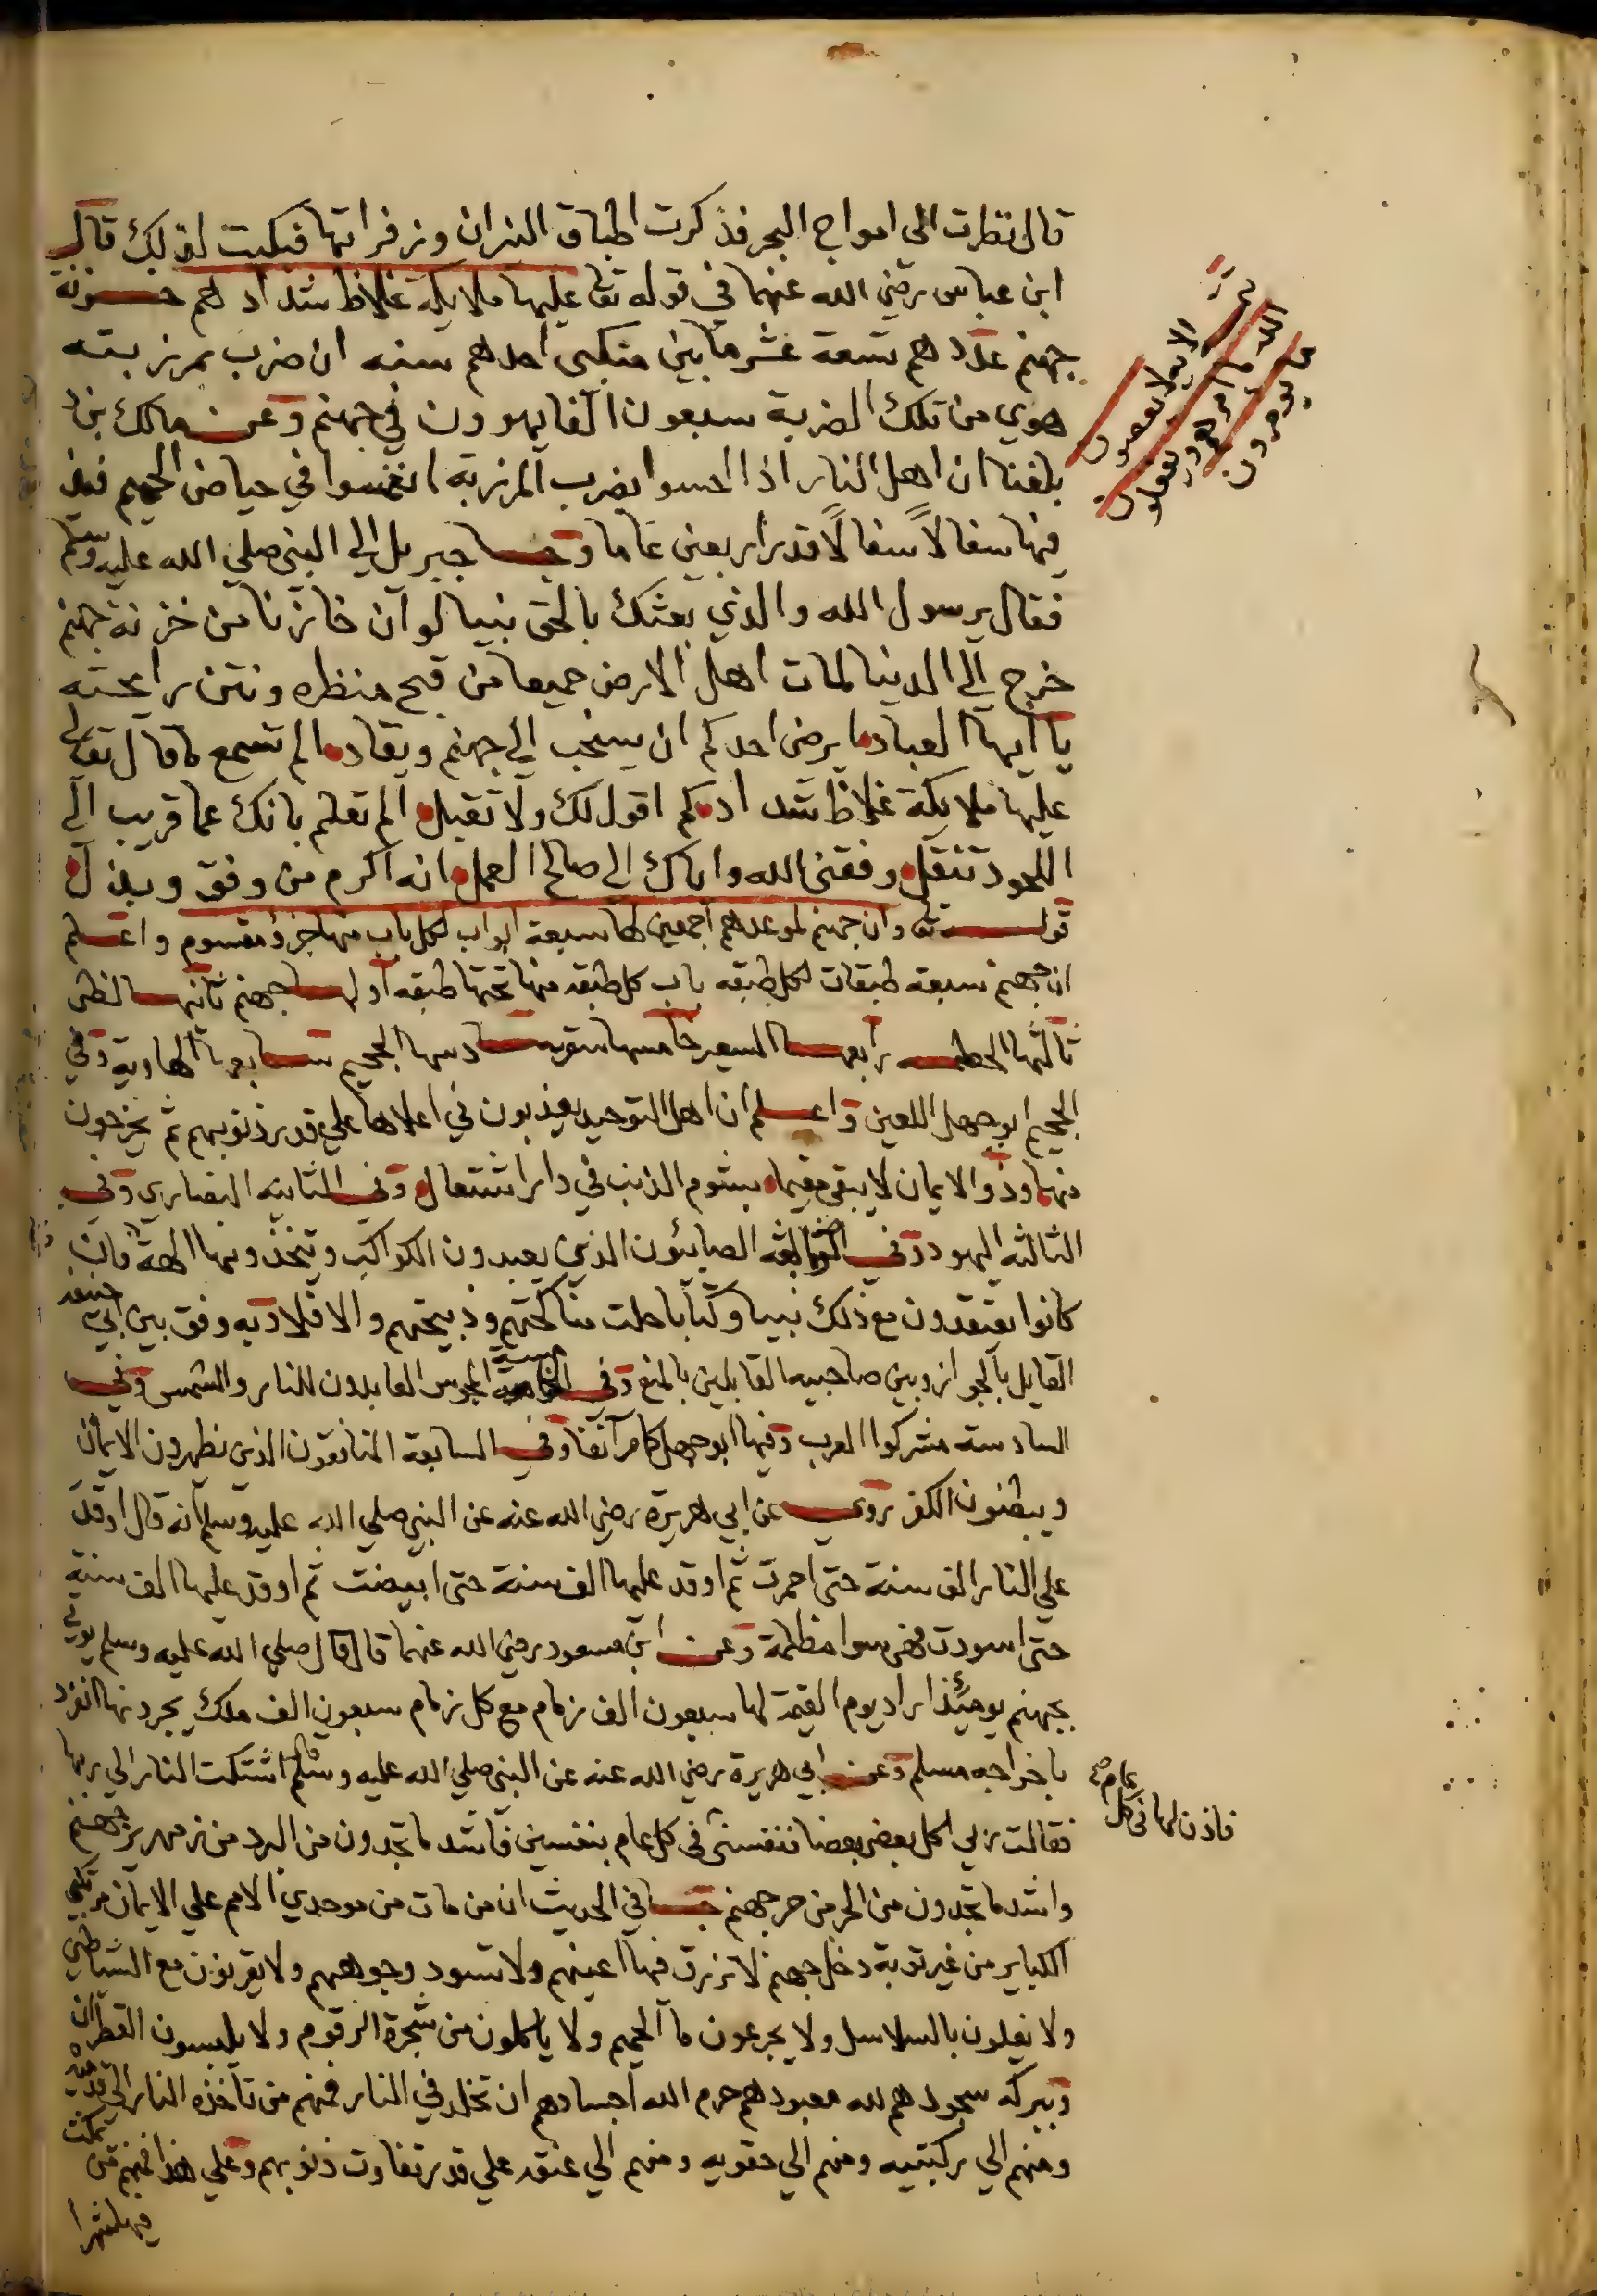 قال نظرت الى امواج البحر فذكرت اطباق النيران وزفراتها فبكيت لذلك قال
ابن عباس رضي الله عنهما في قوله تعا عليها ملايكة غلاظ شداد هم خزنة
جهنم عددهم تسعة عشر ما بين منكبي احدهم سنه ان ضرب بمرزبته
هوي من تلك الضربة سبعون الفا يهوون في جهنم وعن مالك بن
بلغنا ان اهل النار اذا احسوا بضرب المرزبة انغمسوا في حياض الحميم
فيها سفالا سفالا قدر اربعين عاما وجا جبريل الي النبي صلي الله عليه وسلم
فقال يرسول الله والذي بعثك بالحق نبيا لو ان خازنا من خزنة جهنم
خرج الي الدنيا لمات اهل الارض جميعا من قبح منظره ونتن رايحته
يا ايها العباد ما يرضى احدكم ان يسحب الي جهنم ويقاد الم تسمع ما قال تعالي
عليها ملايكة غلاظ شداد كم اقول لك ولا تقبل الم تعلم بانك عما قريب الي
اللحود تنقل وفقني الله واياك الي صالح العمل انه اكرم من وفق وبذل
قوله تعا وان جهنم لموعدهم اجمعين لها سبعة ابواب لكل باب منهم جزؤ مقسوم واعلم
ان جهنم سبعة طبقات لكل طبقه باب كل طبقه منها تحتها طبقه اولها جهنم ثانيها لظى
ثالثها الحطمه رابعها السعير خامسها سقر سادسها الجحيم سابعها الهاوية وفي
الجحيم ابو جهل اللعين واعلم ان اهل التوحيد يعذبون في اعلاها علي قدر ذنوبهم ثم يخرجون
منها وذو الايمان لا يبقى مقيما بشوم الذنب في دار اشتعال وفي الثانيه النصاري وفي
الثالثه اليهود وفي الرابعه الصابئون الذين يعبدون الكواكب ويتخذونها الهة فان
كانوا يعتقدون مع ذلك نبيا وكتابا حلت مناكحتهم وذبيحتهم والا فلا وبه وفق بين ابي حنيفه
القايل بالجواز وبين صاحبيه القايلين بالمنع وفي الخامسة المجوس العابدون للنار والشمس وفي
السادسته مشركوا العرب وفيها ابو جهل كما مر آنفا وفي السابعة المنافقون الذين يظهرون الايمان
ويبطنون الكفر روي عن ابي هريرة رضي الله عنه عن النبي صلي الله عليه وسلم انه قال اوقد
علي النار الف سنة حتى احمرت ثم اوقد عليها الف سنة حتى ابيضت ثم اوقد عليها الف سنة
حتى اسودت فهي سوا مظلمة وعن ابن مسعود رضي الله عنهما قال قال صلي الله عليه وسلم يوتي
بجهنم يومئذ اراد يوم القيمة لها سبعون الف زمام مع كل زمام سبعون الف ملك يجرونها انفرد
باخراجه مسلم وعن ابي هريرة رضي الله عنه عن النبي صلي الله عليه وسلم اشتكت النار الي ربها
فقالت ربي اكل بعضي بعضا فنفسني في كل عام بنفسين فاشد ما تجدون من البرد من زمهرير جهنم
واشد ما تجدون من الحر من حر جهنم جا في الحديث ان من مات من موحدي الامم علي الايمان مرتكبي
الكباير من غير توبة دخل جهنم لا تزرق فيها اعينهم ولا تسود وجوههم ولا يقرنون مع الشياطين
ولا يغلون بالسلاسل ولا يجرعون ما الحميم ولا ياكلون من شجرة الزقوم ولا يلبسون القطران
وببركه سجودهم لله معبودهم حرم الله اجسادهم ان تخلد في النار فمنهم من تاخذه النار الي قدميه
ومنهم الي ركبتيه ومنهم الي حقويه ومنهم الي عنقه علي قدر تفاوت ذنوبهم وعلي هذا فمنهم من يمكث
فيها شهرا
الاية لا يعصون
الله ما امرهم ويفعلون
ما يومرون
فاذن لها في كل
عام صح